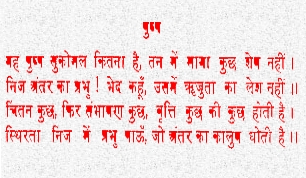 पुष्प
यह पुष्प सुकोमल कितना है, तन में माया कुछ शेष नहीं ।
निज अंतर का प्रभु ! भेद कहूँ, उसमें ऋजुता का लेश नहीं ।।
चिंतन कुछ, फिर संभाषण कुछ, वृत्ति कुछ की कुछ होती है ।
स्थिरता निज में प्रभु पाऊँ, जो अंतर का कालुष धोती है ।।